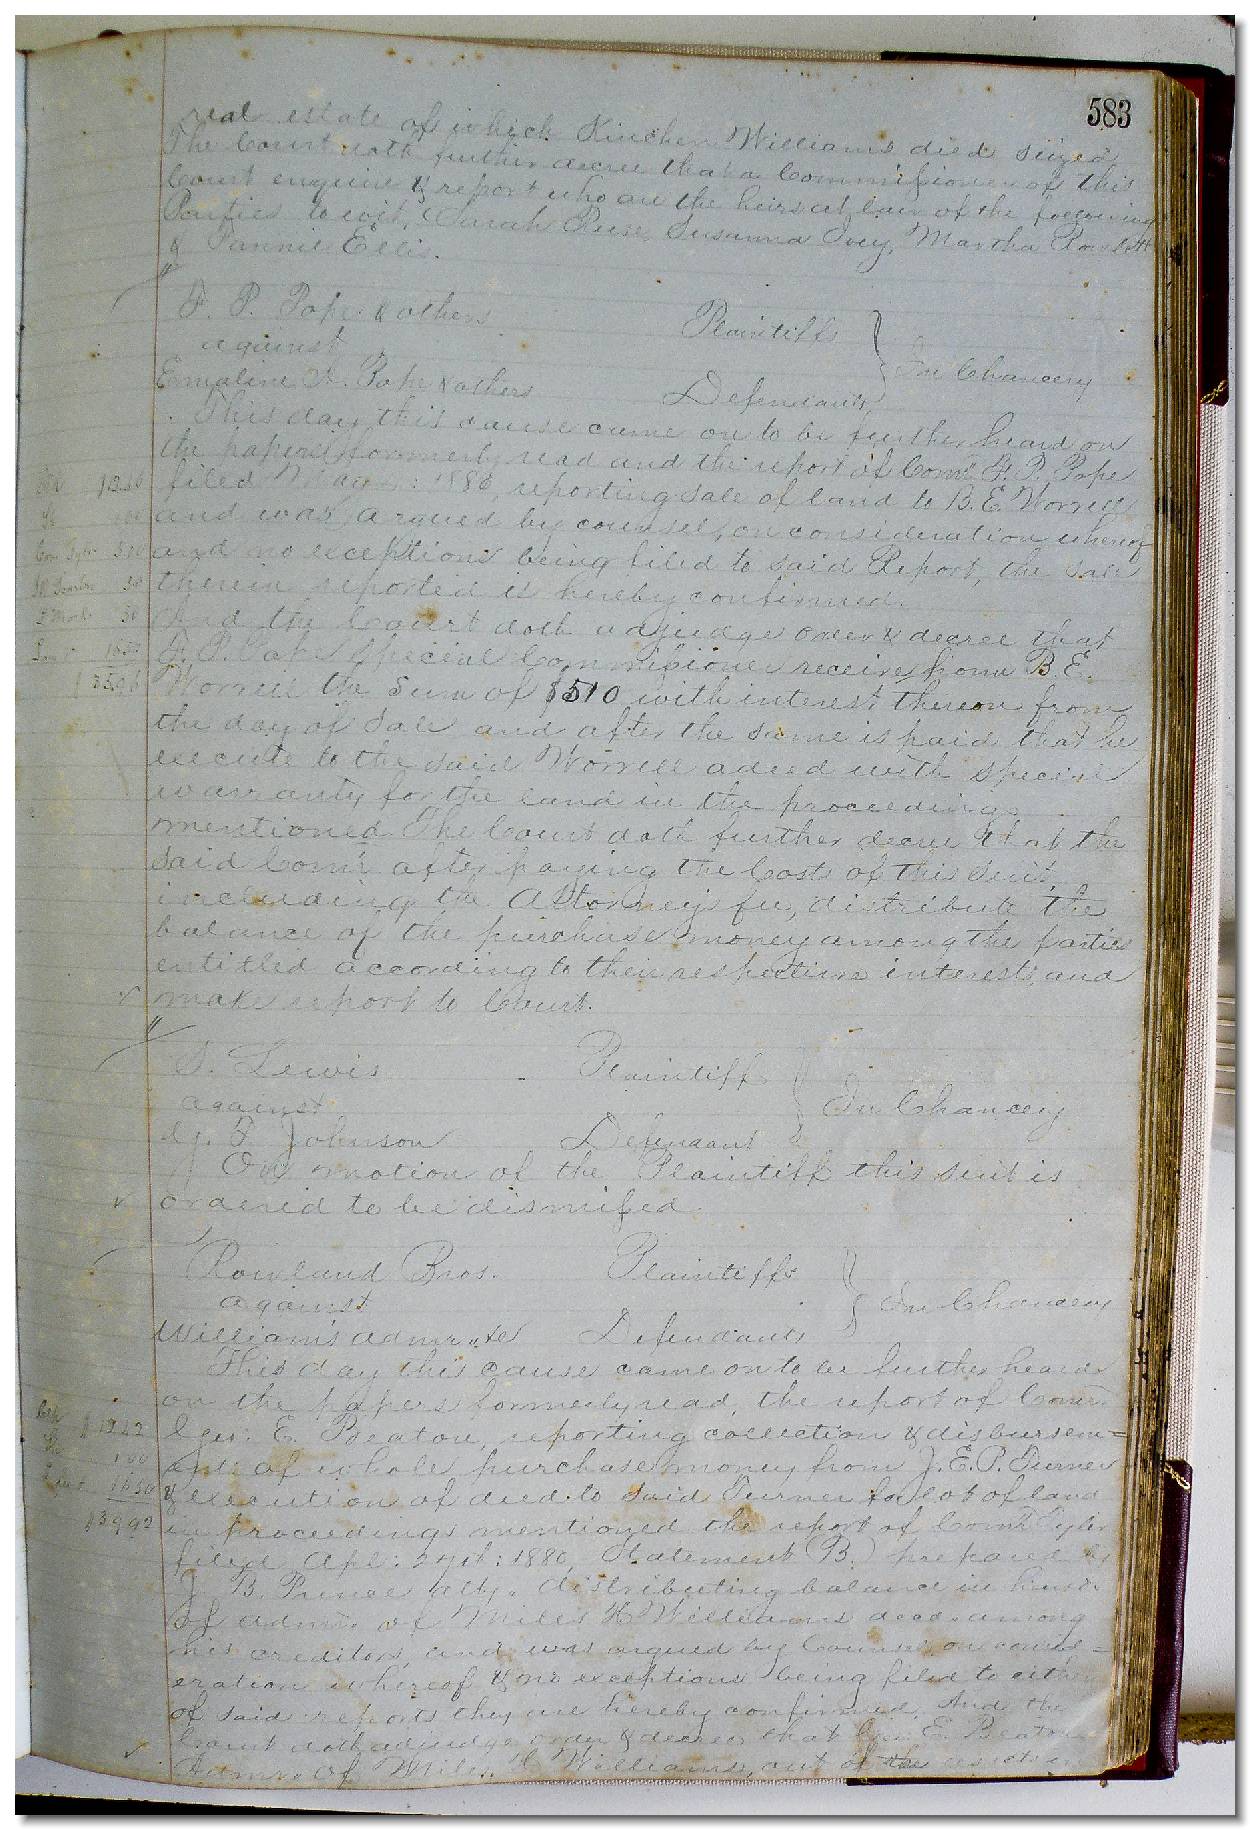 583
real estate of which Kinchen Williams died seized
The Court doth further decree that a Commissioner of this
Court enquire & report who are the heirs at law of the following
Parties to wit, Sarah Reese, Susanna Ivey, Martha
& Fannie Ellis.
F. P. Pope & others Plaintiffs
against In Chancery
Emaline A. Pope & others Defendants,
This day this cause came on to be further heard on
the papers formerly read and the report of Comr. F. P. Pope
filed 1880, reporting sale of land to B. E. Worrell
and was argued by counsel, on consideration whereof
and no exceptions being filed to said Report, the sale
therein reported is hereby confirmed.
And the Court doth adjudge order & decree that
F. P. Pope Special Commissioner receive from B. E.
Worrell the sum of $510 with interest thereon from
the day of sale and after the same is paid that he
execute to the said Worrell a deed with special
warranty for the land in the proceedings
mentioned. The Court doth further decree that the
said Comr. after paying the Costs of this suit,
including the Attorneys fee, distribute the
balance of the purchase money among the parties
entitled according to their respective interests, and
make report to Court.
S. Lewis Plaintiff
against In Chancery
F. Johnson Defendant
On motion of the Plaintiff this suit is
ordered to be dismissed.
Rowland Bros. Plaintiffs
against In Chancery
Williams admr. Defendants
This day this cause came on to be further heard
on the papers formerly read, the report of Comr.
$ 1242 E. Beaton, reporting collection & disbursem=
100 ents of whole purchase money from J. E. P. Turner
1650 & execution of deed to said Turner for lot of land
$3992 in proceedings mentioned the report of Comr. Tyler
filed Apl: 27th: 1880, Statement (B.) prepared by
J. B. Prince atty. distributing balance in hands
of admr. of Miles H. Williams decd. among
his creditors, and was argued by Counsel on consid=
eration whereof & no exceptions being filed to either
of said reports they are hereby confirmed, And the
Court doth adjudge order & decree that E. Beaton
Admr. of Miles H. Williams, out of the